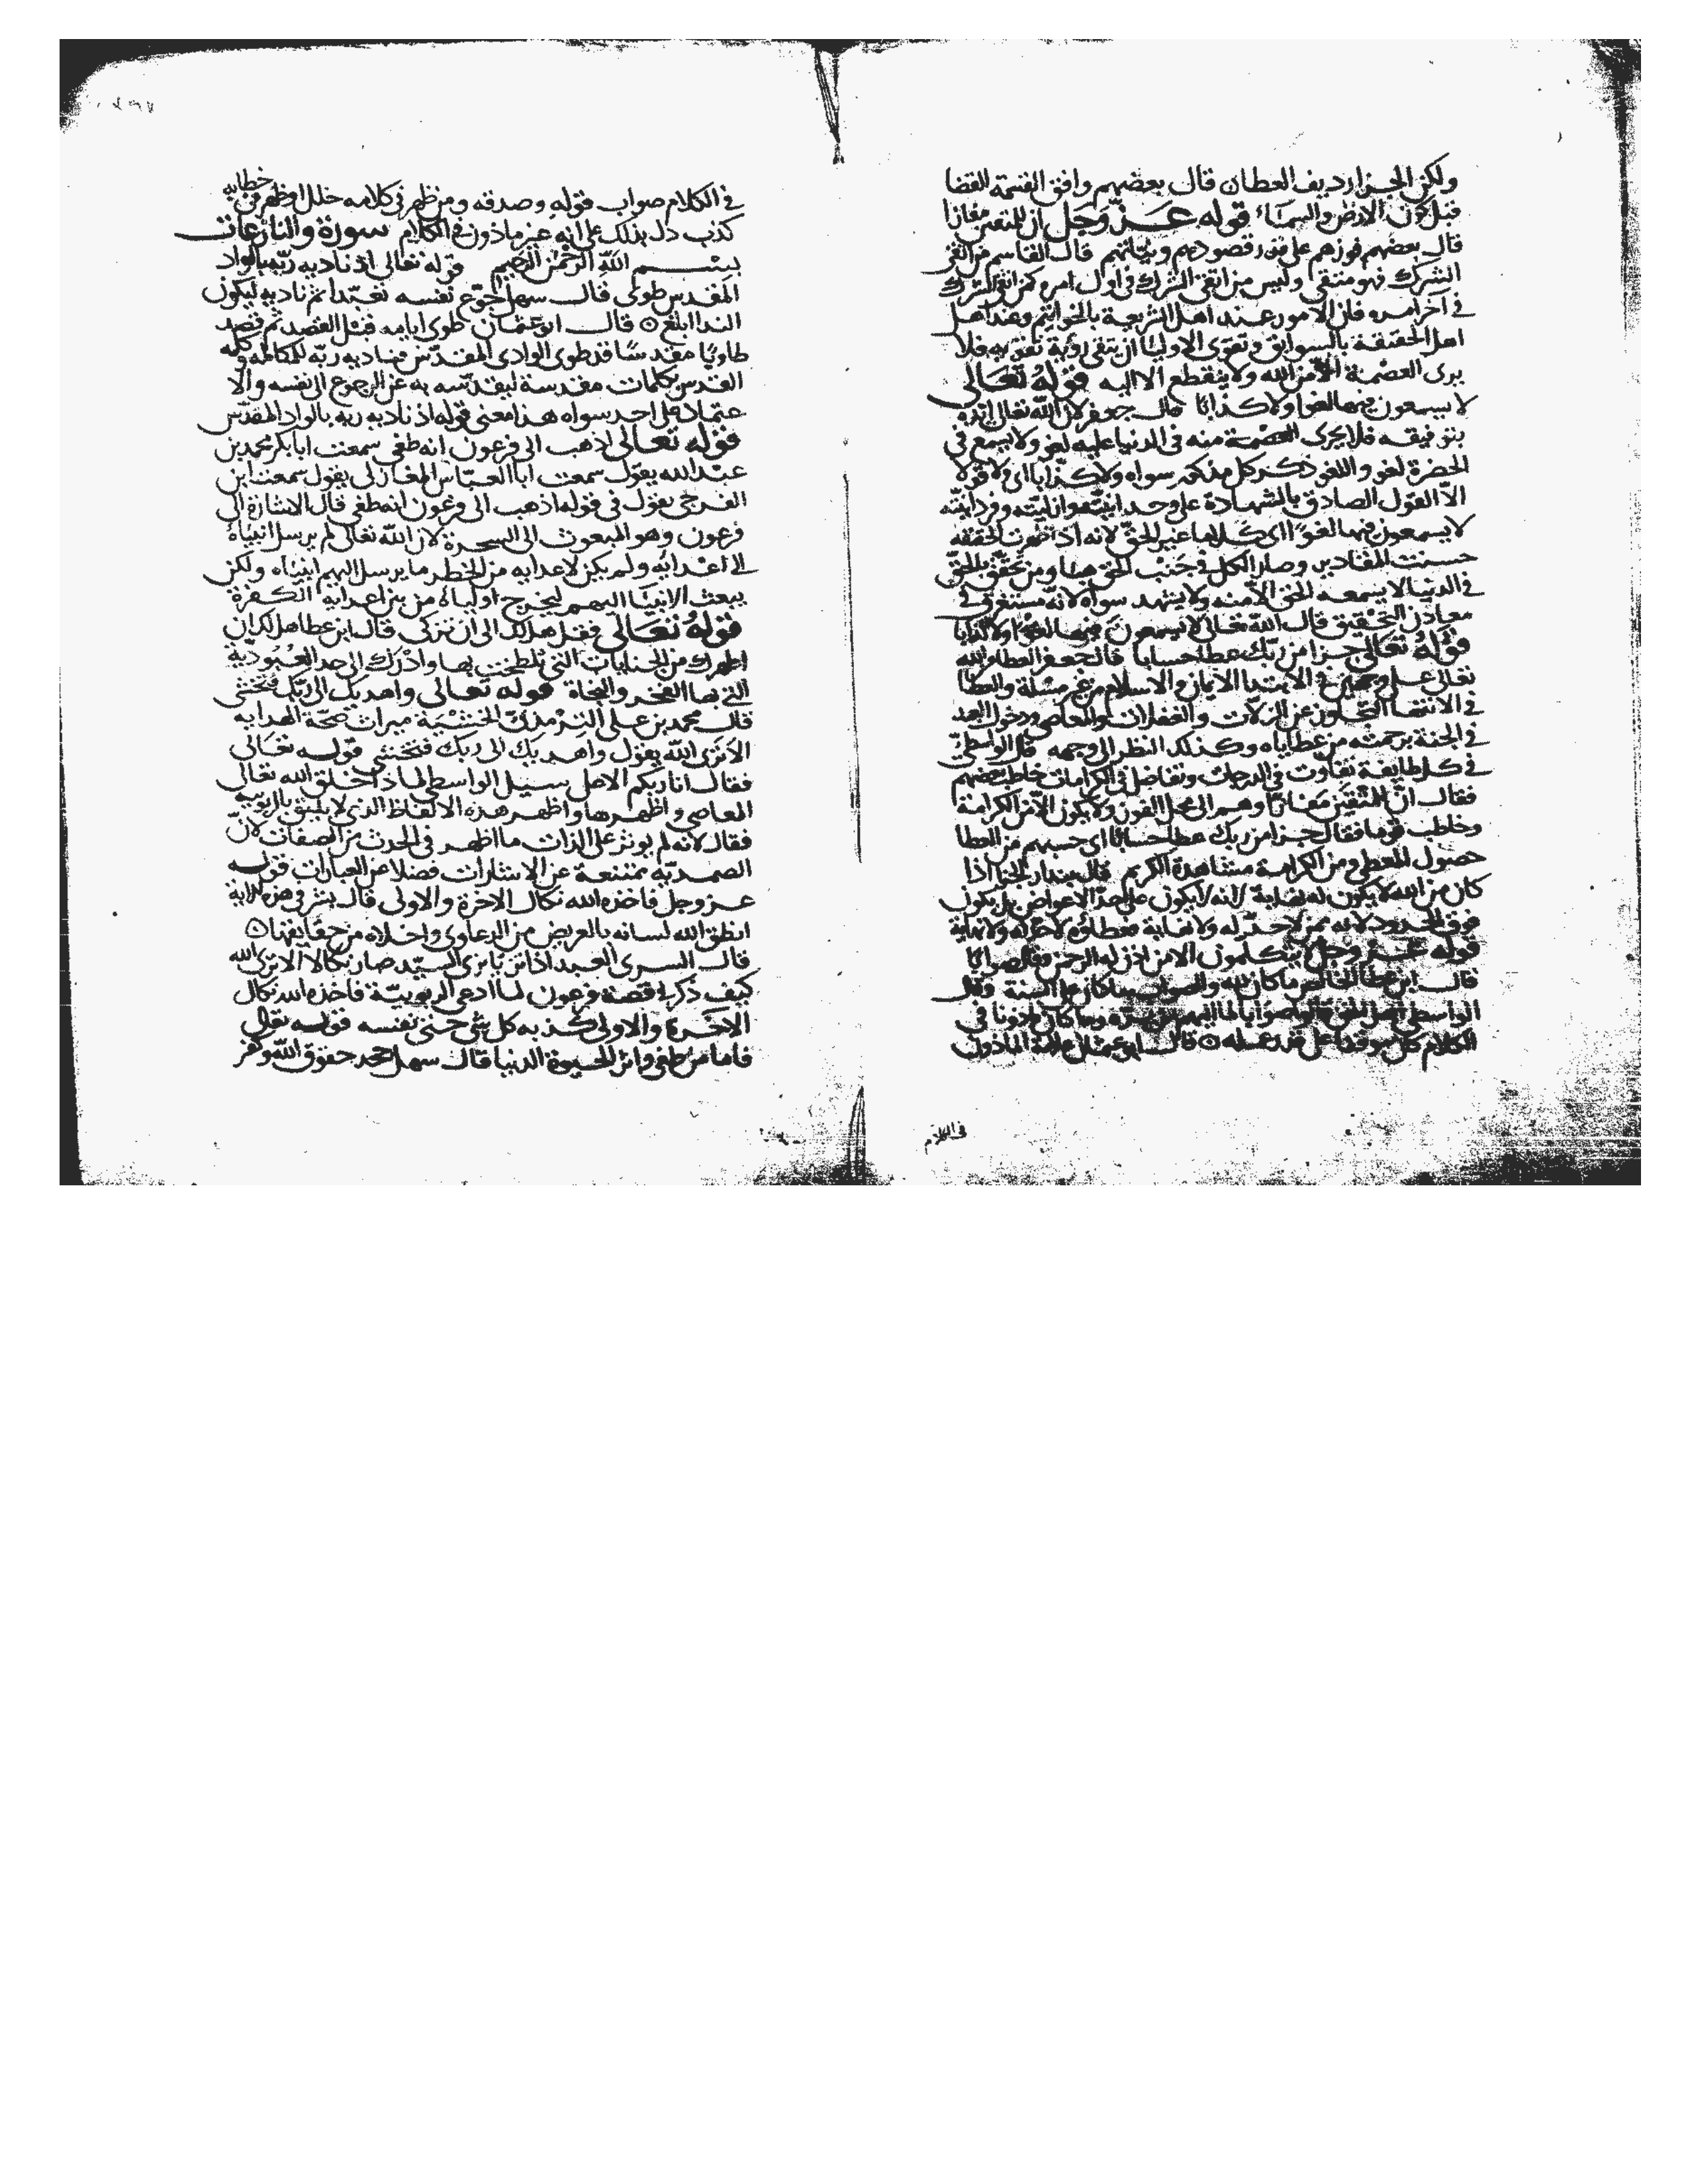 ولكن الجزا رديف العطان قال بعضهم وافق القسمة القضا
قبل كون الارض والسماء قوله عز وجل ان للمتقين مفازا
قال بعضهم فوزهم على قدر قصودهم ونياتهم قال القاسم من اتقى
الشرك فهو متقى وليس من اتقى الشرك فى اول امره كمن اتقى الشرك
فى آخر امره فان الامور عند اهل الشريعة بالخواتيم وعند اهل
اهل الحقيقة بالسوابق وتقوى الاوليا ان يتقى رؤية تقويه فلا
يرى العصمة الا من الله ولا ينقطع الا اليه قوله تعالى
لا يسمعون فيها لغوا ولا كذابا قال جعفر لان الله تعالى
بتوفيقه فلا يجرى العصمة منه فى الدنيا عليه لغو ولا يسمع فى
الحضرة لغو واللغو ذكر كل مذكور سواه ولا كذابا اى لا قولا
الا القول الصادق بالشهادة على وحدانيته وازليته وفردانيته
لا يسمعون فيها لغوا اى كلاما غير الحق لانه اذ ظهرت الحقيقة
حسنت المقادير وصار الكل فى جنب الحق هبا ومن تحقق بالحق
فى الدنيا لا يسمعه الحق الا منه ولا يشهد سواه لانه مستغرق فى
معادن التحقيق قال الله تعالى لا يسمعون فيها لغوا ولا كذابا
قوله تعالى جزا من ربك عطا حسابا قال جعفر العطا من الله
تعالى على وجهين فى الابتدا الايمان والاسلام من غير مسئلة والعطا
فى الانتها التجاوز عن الزلات والغفران والمعاصى ودخول العبد
فى الجنة برحمته من عطاياه وكذلك النظر الى وجهه قال الواسطى
فى كل طايفة تفاوت فى الدرجات وتفاضل فى الكرامات خاطب بعضهم
فقال ان للمتقين مفازا وهم الى محل الفوز ولا يكون الا من الكرامة
وخاطب قوما فقال جزا من ربك عطا حسابا اى حسبهم من العطا
حصول المعطى ومن الكرامة مشاهدة الكريم قال بندار الجزا اذا
كان من الله لا يكون له نهاية لانه لا يكون على حد الاعواض بل يكون
فوق الحدود لانه ممن لا حد له ولا نهاية فعطاؤه لا حد له ولا نهاية
قوله عز وجل لا يتكلمون الا من اذن له الرحمن وقال صوابا
قال ابن عطا الخالص ما كان لله والصواب ما كان على السنة وقال
الواسطى وما كان ماذونا فى
الكلام على قدر عمله ۞ قال ابو عثمان علامة الماذون
فى الكلام
فى الكلام صواب قوله وصدقه ومن ظهر فى كلامه خلل او ظهر فى خطابه
كذب دل بذلك على انه غير ماذون فى الكلام سورة والنازعات
بسم الله الرحمن الرحيم قوله تعالى اذ ناديه ربه بالواد
المقدس طوى قال سهل جوع نفسه تعبدا ثم ناديه ليكون
الندا ابلغ ۞ قال ابو عثمان طوى ايامه قبل القصد ثم قصد
طاويا مقدسا قد طوى الوادى المقدس فناديه ربه للمكالمة وكله
القدس بكلمات مقدسة ليقدسه به عن الرجوع الى نفسه والا
عتماد على احد سواه هذا معنى قوله اذ ناديه ربه بالواد المقدس
قوله تعالى اذهب الى فرعون انه طغى سمعت ابا بكر محمد بن
عبد الله يقول سمعت ابا العباس المغازلى يقول سمعت ابن
الفرجى يقول فى قوله اذهب الى فرعون انه طغى قال الاشارة الى
فرعون وهو المبعوث الى السحرة لان الله تعالى لم يرسل انبياءه
الى اعدايه ولم يكن لاعدايه من الخطر ما يرسل اليهم انبياه ولكن
يبعث الانبيا اليهم ليخرج اولياه من بين اعدايه الكفرة
قوله تعالى فقل هل لك الى ان تزكى قال ابن عطا هل لك ان
اطهرك من الجنايات التى تلطخت بها وادرك الى حد العبودية
التى بها الفخر والنجاة قوله تعالى واهديك الى ربك فتخشى
قال محمد بن على الترمذى الخشية ميراث صحة الهداية
الا ترى الله يقول واهديك الى ربك فتخشى قوله تعالى
فقال انا ربكم الاعلى سيل الواسطى لماذا خلق الله تعالى
المعاصى واظهرها واظهر هذه الالفاظ الذى لا يليق بالربوبية
فقال لانه لم يوثر على الذات ما اظهر فى الحدث من الصفات لان
الصمدية ممتنعة عن الاشارات فضلا عن العبارات قوله
عز وجل فاخذه الله نكال الاخرة والاولى قال بشر فى هذه الاية
انطق الله لسانه بالعريض من الدعاوى واخلاه من حقايقها ۞
قال السرى العبد اذا تزيا بزى السيد صار نكالا الا ترى الله
كيف ذكر فى قصة فرعون لما ادعى الربوبية فاخذه الله نكال
الاخرة والاولى كذبه كل شئ حتى نفسه قوله تعالى
فاما من طغى واثر الحيوة الدنيا قال سهل جحد حقوق الله وكفر